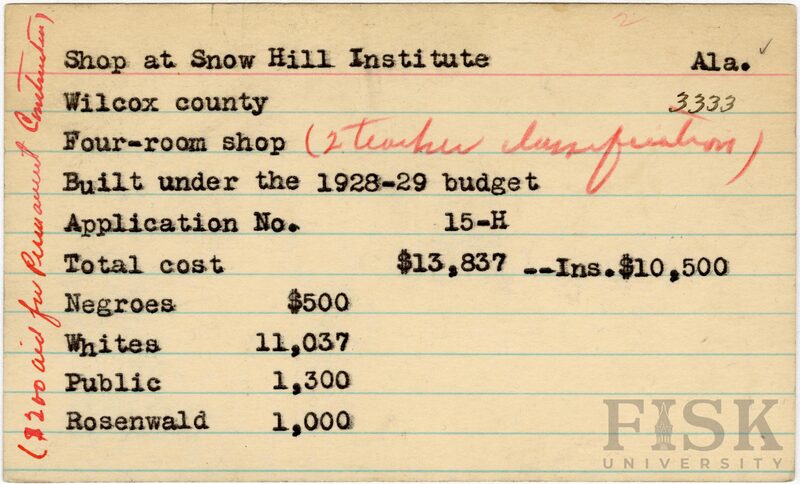 2
Shop at Snow Hill Institute Ala. ✓
Wilcox county 3333
Four-room shop (2 teacher classification)
Built under the 1928-29 budget
Application No. 15-H
Total cost $13,837 --Ins.$10,500
Negroes $500
Whites 11,037
Public 1,300
Rosenwald 1,000
($200 aid for Permanent Construction)
FISK
UNIVERSITY